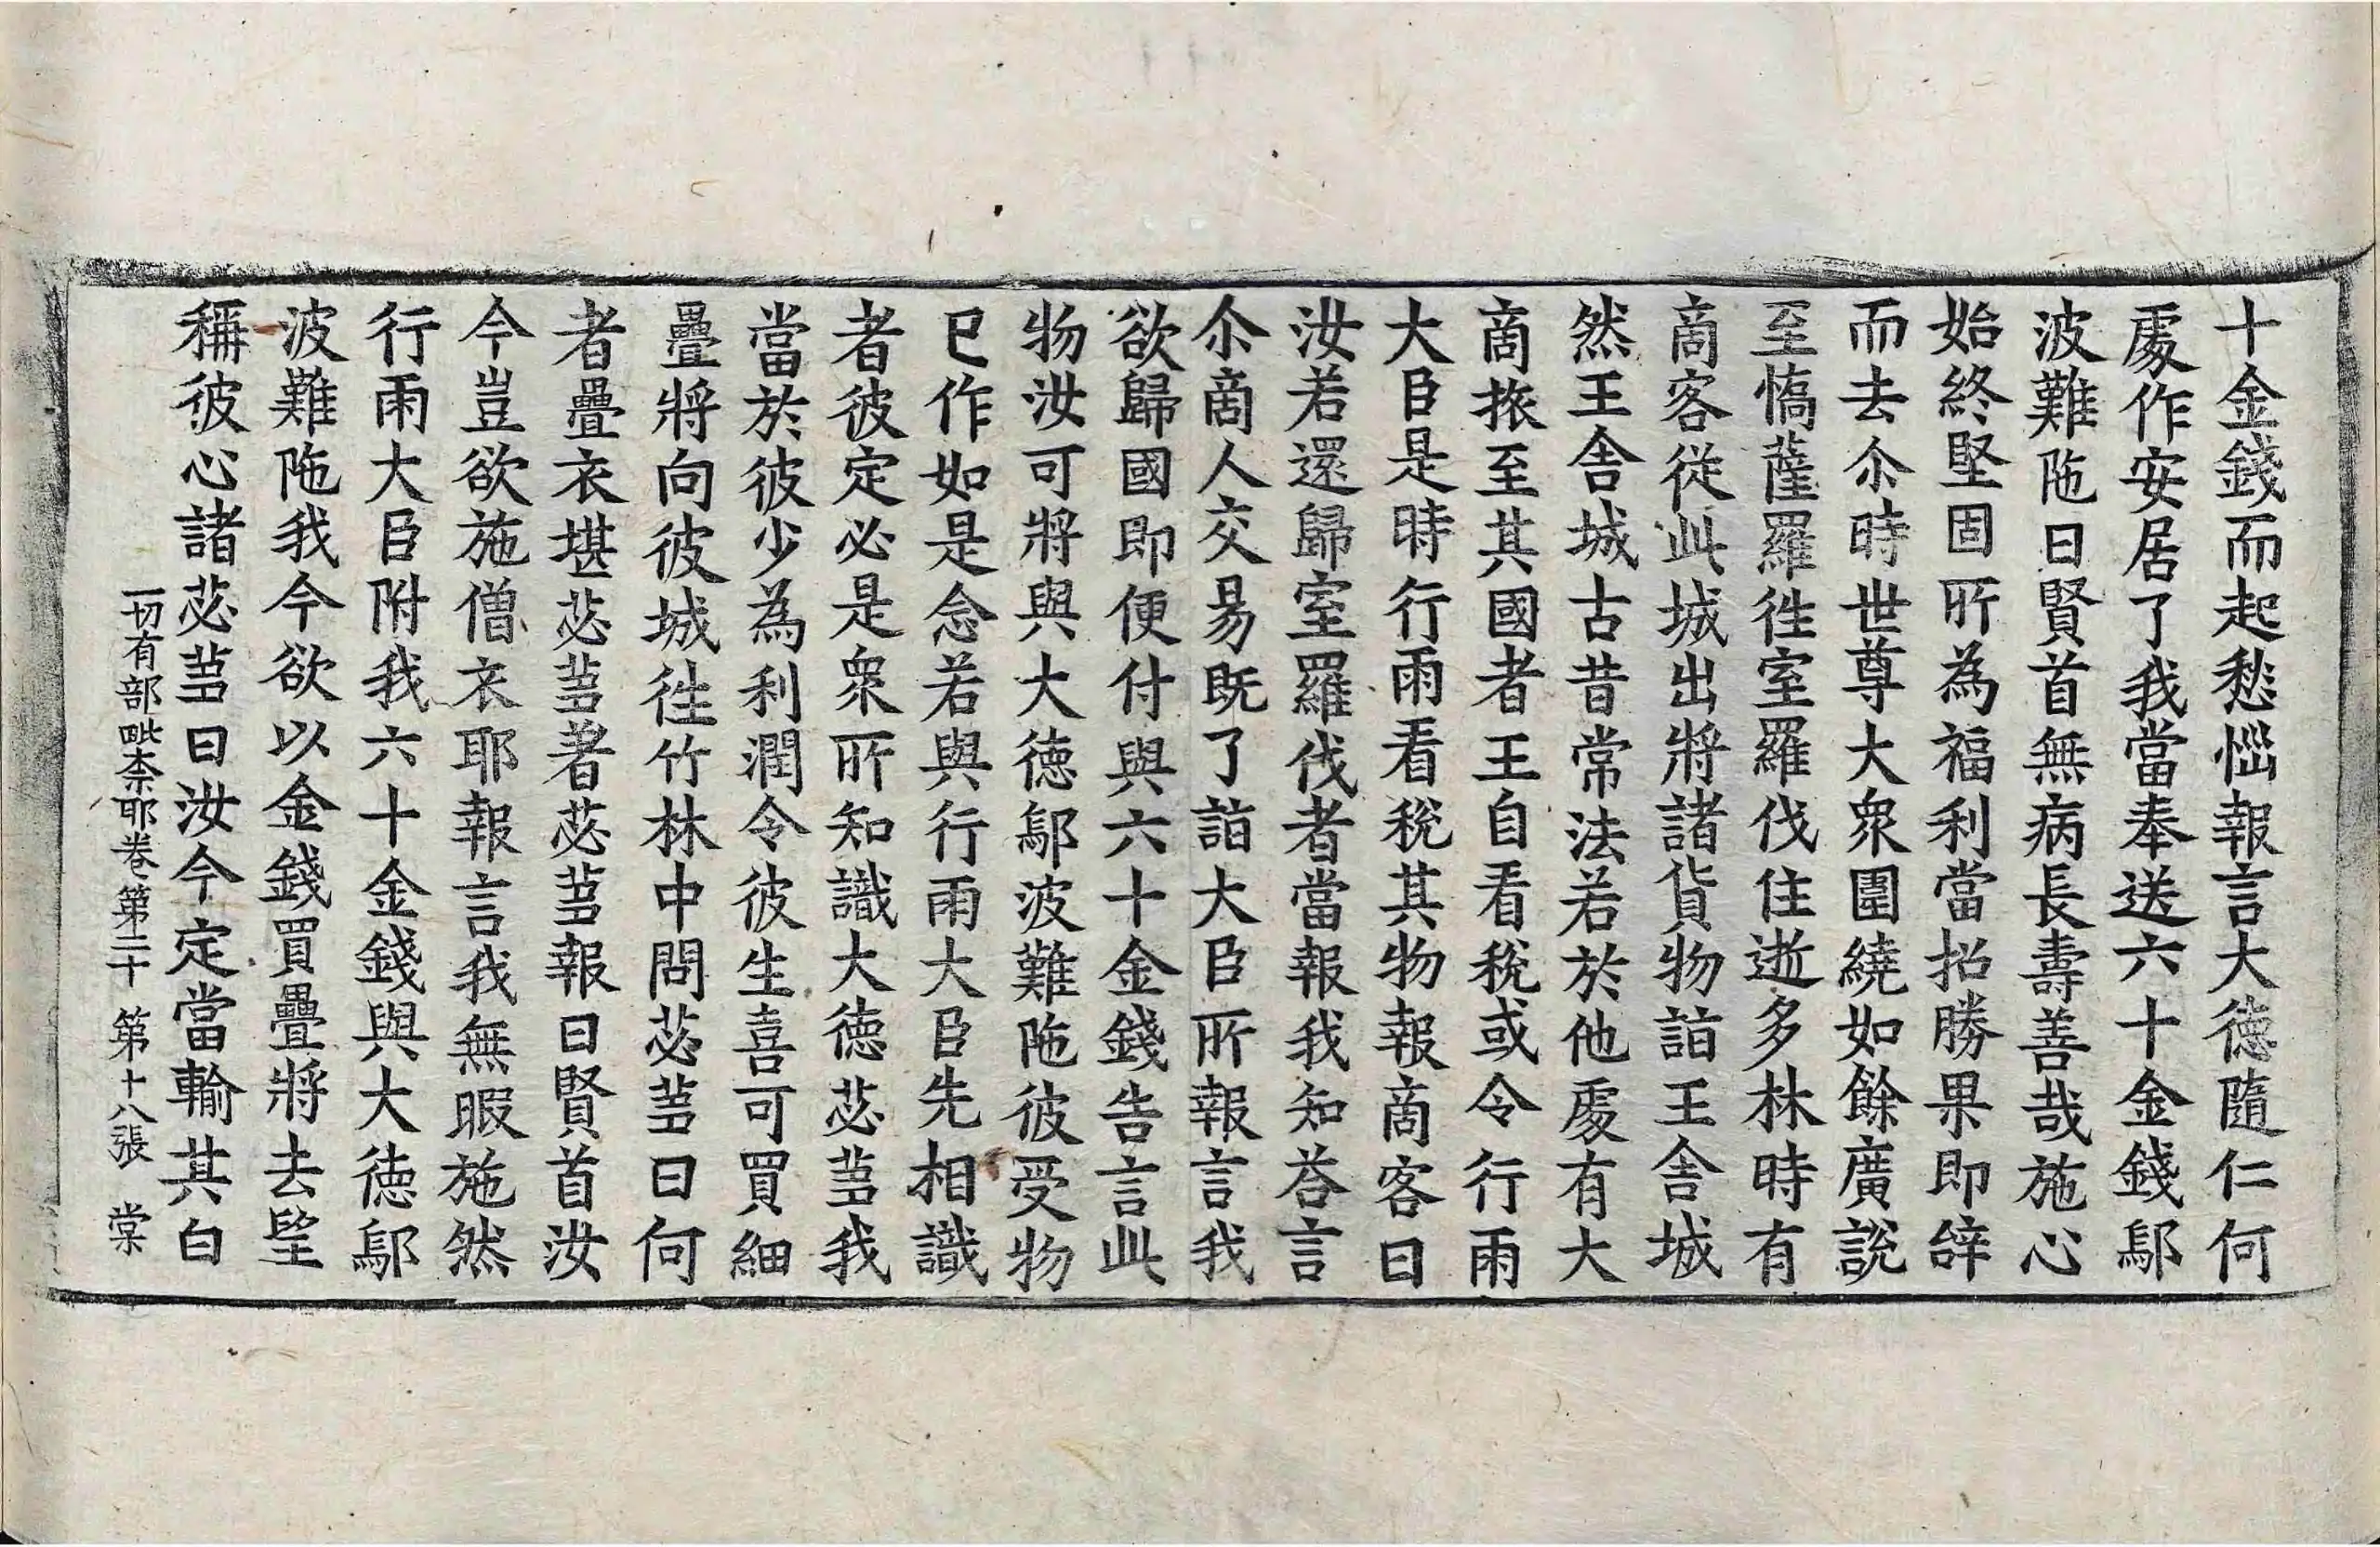 十金錢而起愁惱報言大德隨仁何
處作安居了我當奉送六十金錢鄔
波難陁曰賢首無病長壽善哉施心
始終堅固所為福利當招勝果即辝
而去尒時世尊大衆圍繞如餘廣說
至憍薩羅徃室羅伐住逝多林時有
商客從此城出將諸貨物詣王舍城
然王舍城古昔常法若於他處有大
商旅至其國者王自看稅或令行雨
大臣是時行雨看稅其物報商客曰
汝若還歸室羅伐者當報我知荅言
尒商人交易既了詣大臣所報言我
欲歸國即便付與六十金錢告言此
物汝可將與大德鄔波難陁彼受物
已作如是念若與行雨大臣先相識
者彼定必是衆所知識大德苾芻我
當於彼少為利潤令彼生喜可買細
疊將向彼城徃竹林中問苾芻曰何
者疊衣堪苾芻著苾芻報曰賢首汝
今豈欲施僧衣耶報言我無暇施然
行雨大臣附我六十金錢與大德鄔
波難陁我今欲以金錢買疊將去望
稱彼心諸苾芻曰汝今定當輸其白
一切有部毗柰耶卷第二十 第十八張 棠